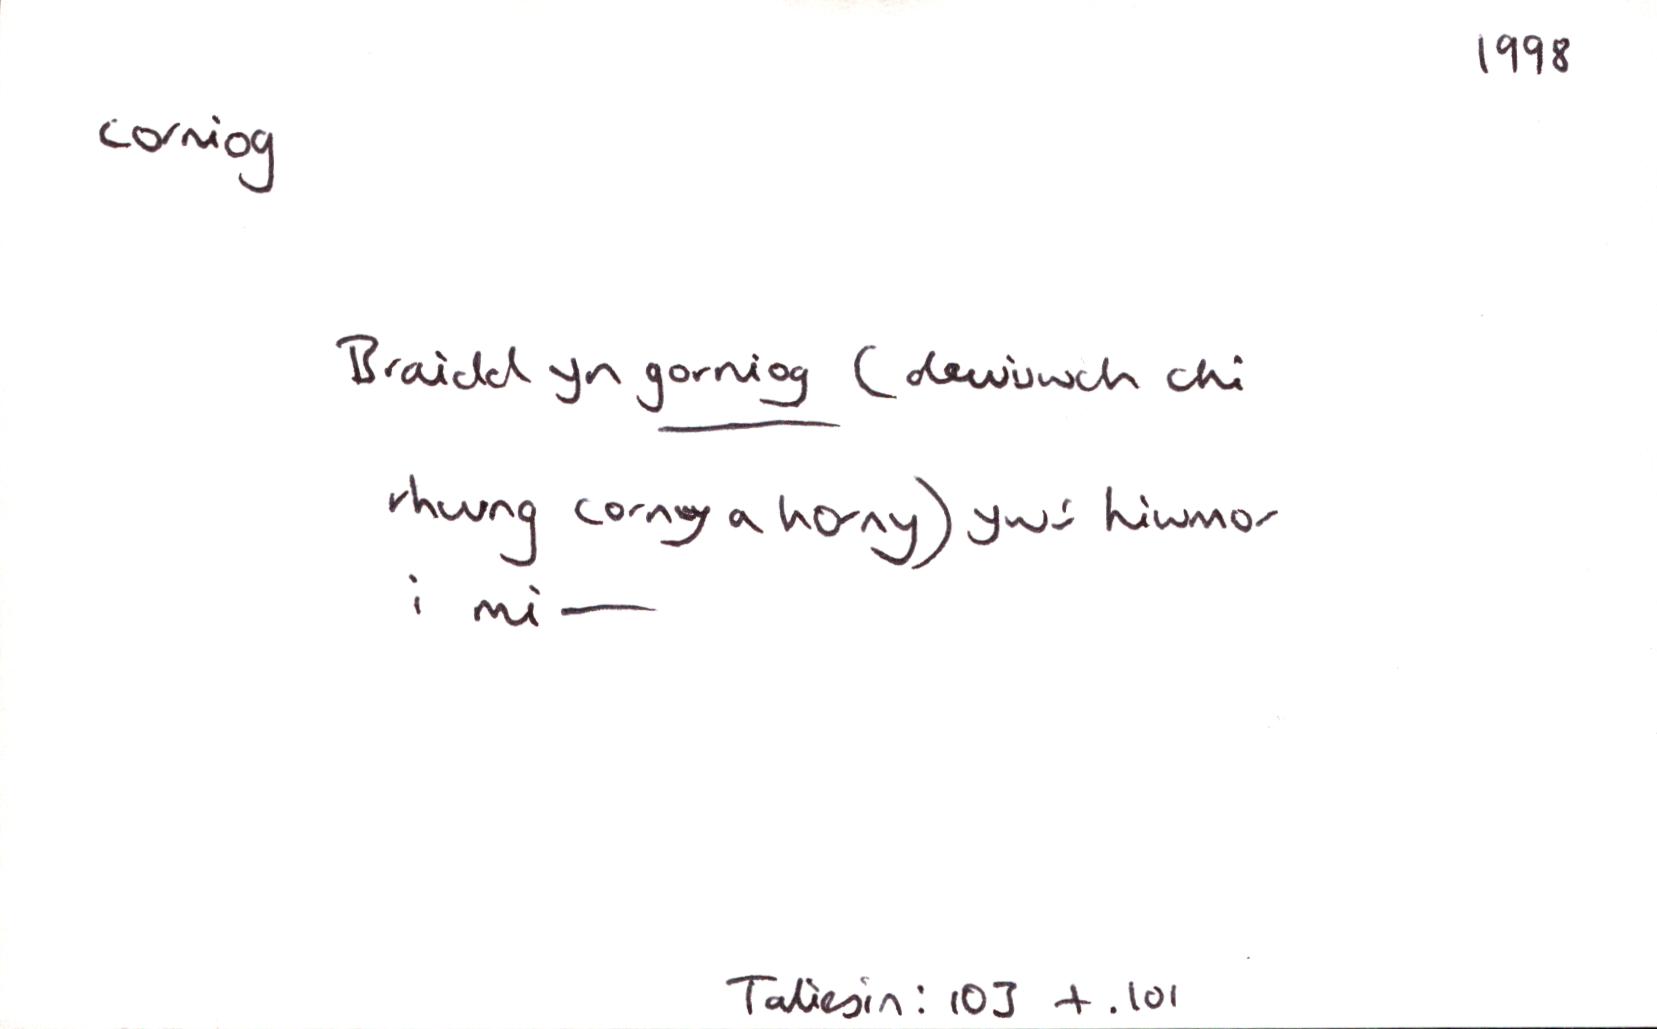 1998
corniog
Braidd yn gorniog (dewiswch chi
rhwng corny a horny) yw'r hiwmor
i mi —
Taliesin: 103 t.101